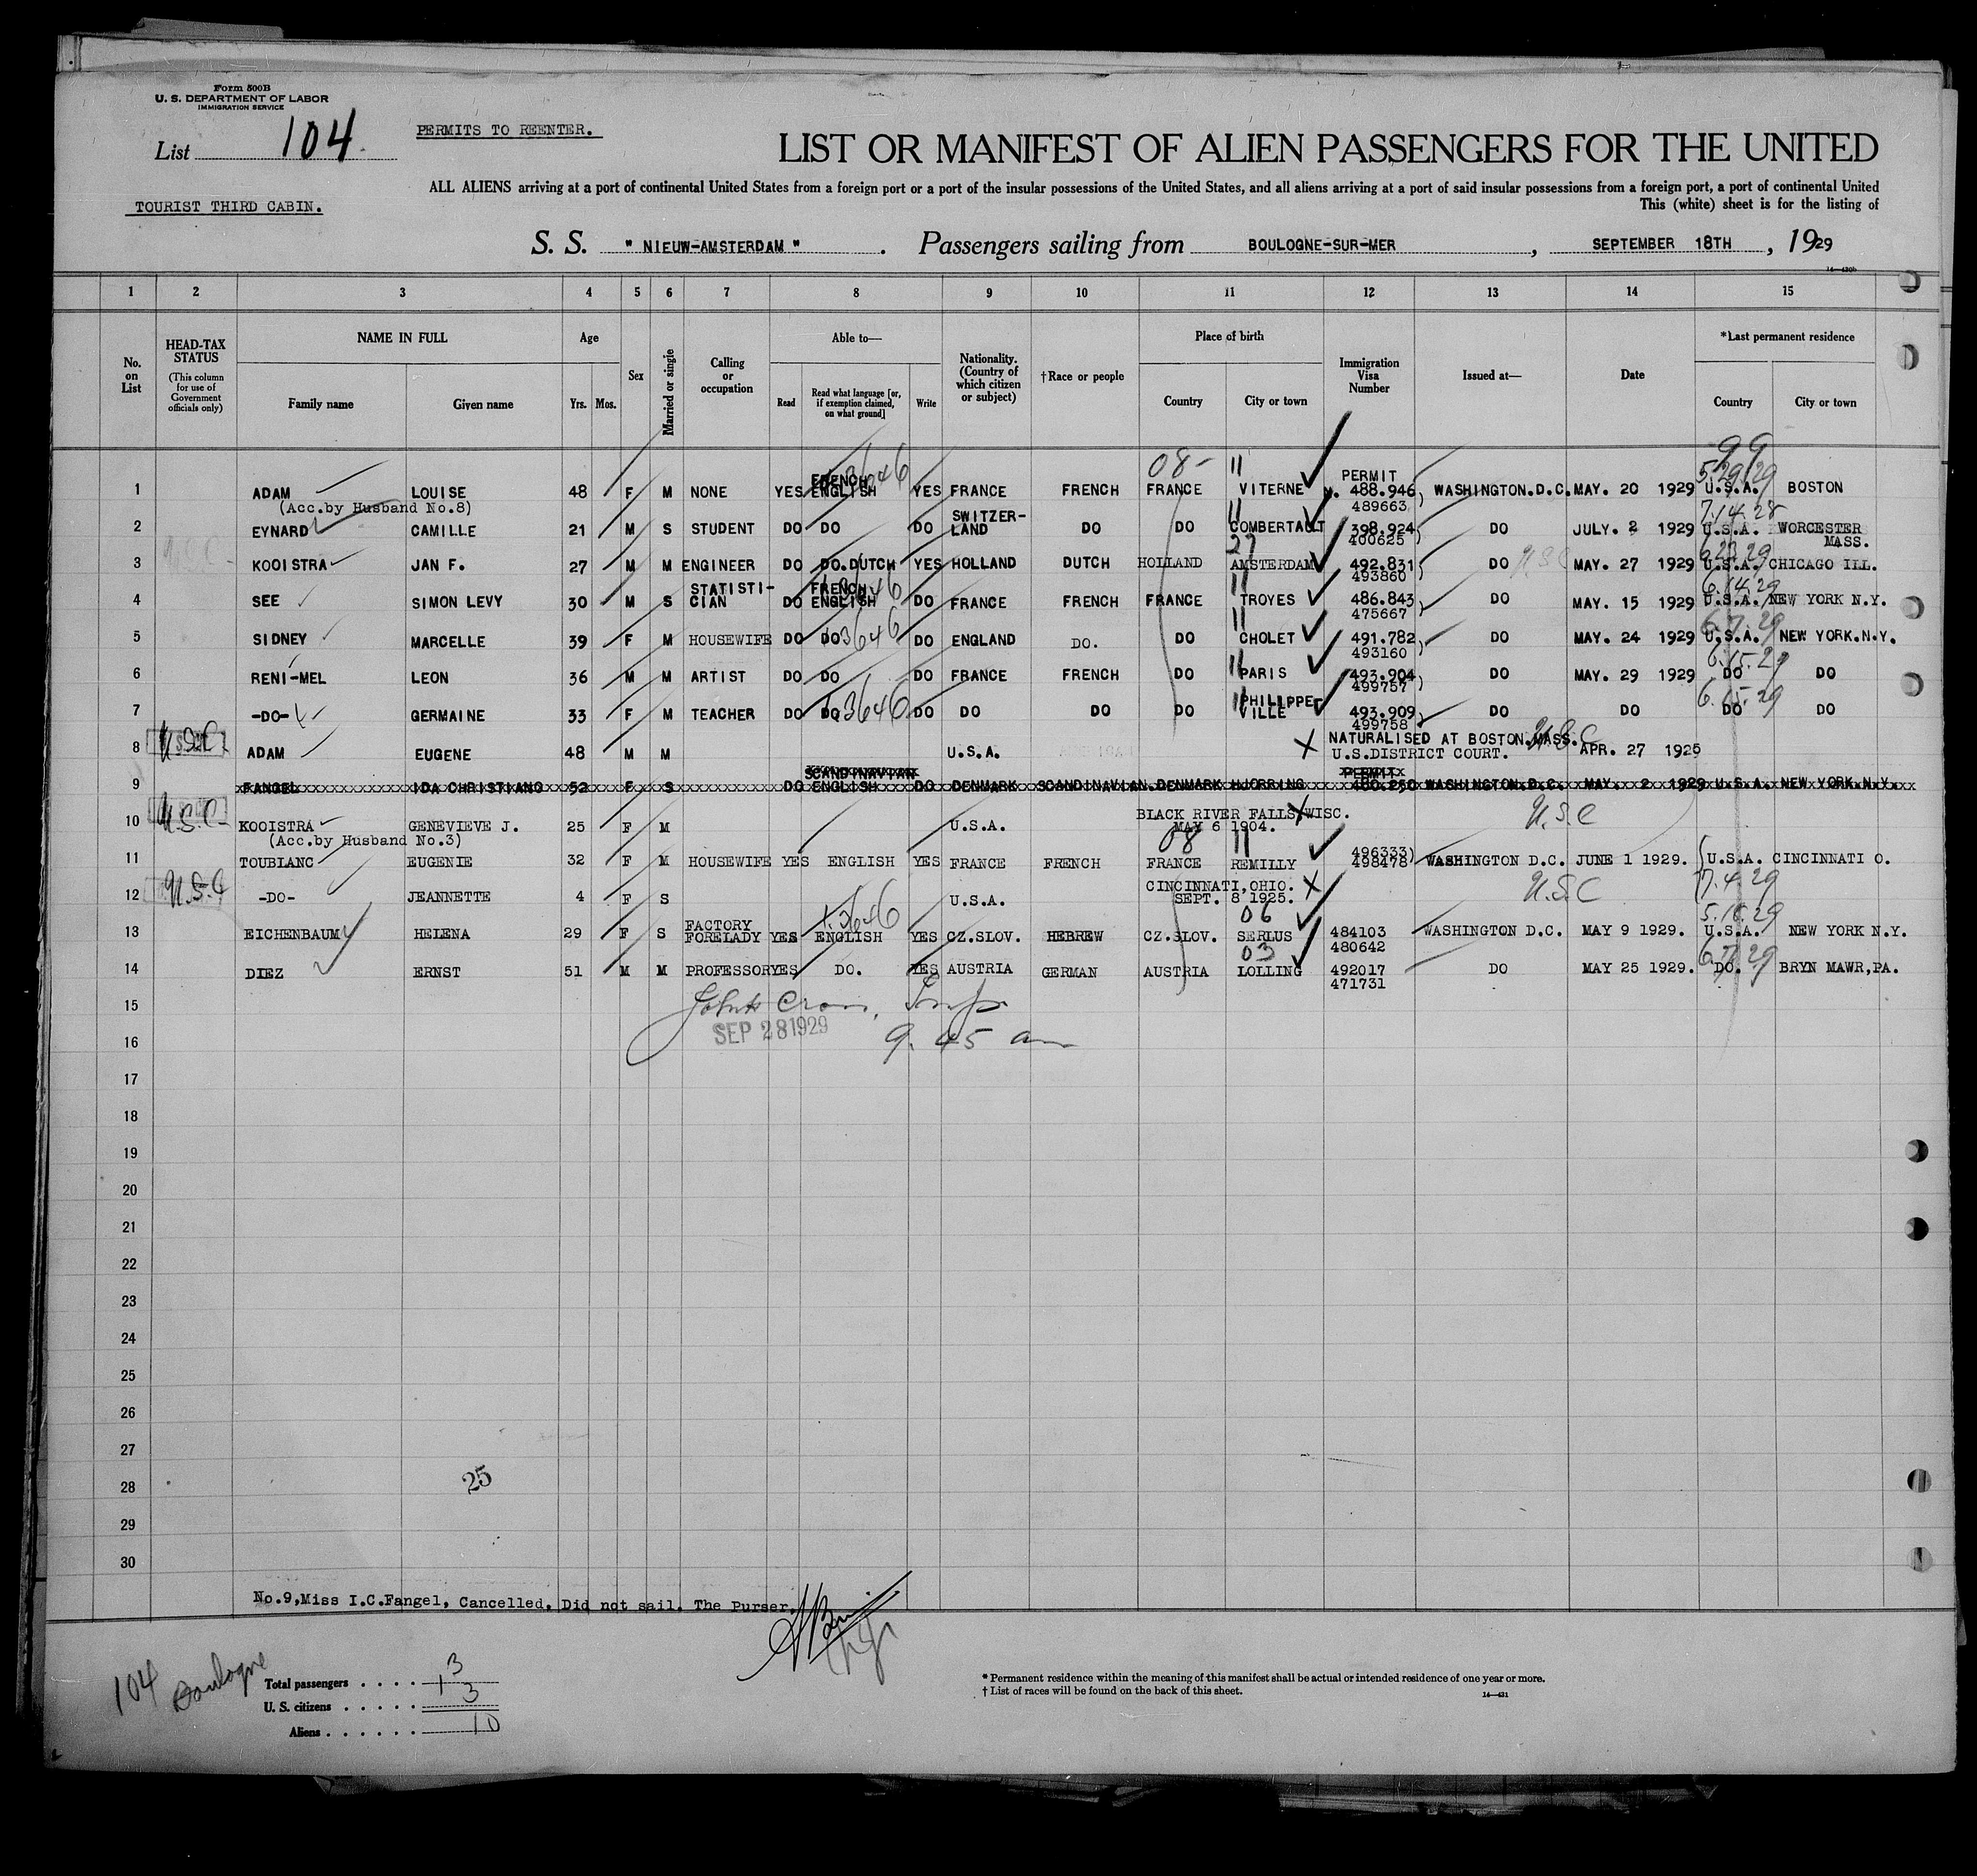 Form 500B
U. S. DEPARTMENT OF LABOR
IMMIGRATION SERVICE
List 104
PERMITS TO REENTER.
LIST OR MANIFEST OF ALIEN PASSENGERS FOR THE UNITED
ALL ALIENS arriving at a port of continental United States from a foreign port or a port of the insular possessions of the United States, and all aliens arriving at a port of said insular possessions from a foreign port, a port of continental United
TOURIST THIRD CABIN.
This (white) sheet is for the listing of
S. S. " NIEUW-AMSTERDAM " . Passengers sailing from BOULOGNE-SUR-MER , SEPTEMBER 18TH , 1929
1 2 3 4 5 6 7 8 9 10 11 12 13 14 15
No. on List
HEAD-TAX STATUS
(This column for use of Government officials only)
NAME IN FULL
Family name Given name
Age
Yrs. Mos.
Sex
Married or single
Calling or occupation
Able to—
Read
Read what language [or, if exemption claimed, on what ground]
Write
Nationality. (Country of which citizen or subject)
†Race or people
Place of birth
Country City or town
Immigration Visa Number
Issued at—
Date
*Last permanent residence
Country City or town
08- 11 99
FRENCH PERMIT 5.29.29
1 ADAM LOUISE 48 F M NONE YES ENGLISH YES FRANCE FRENCH FRANCE VITERNE 488.946 WASHINGTON.D.C. MAY. 20 1929 U.S.A. BOSTON
(Acc.by Husband No.8) 489663
SWITZER- 7.14.28
2 EYNARD CAMILLE 21 M S STUDENT DO DO DO LAND DO DO COMBERTAULT 398.924 DO JULY. 2 1929 U.S.A. WORCESTER
400625 MASS.
27
3 KOOISTRA JAN F. 27 M M ENGINEER DO DO.DUTCH YES HOLLAND DUTCH HOLLAND AMSTERDAM 492.831 DO MAY. 27 1929 U.S.A. CHICAGO ILL.
493860
STATISTI- FRENCH 6.14.29
4 SEE SIMON LEVY 30 M S CIAN DO ENGLISH DO FRANCE FRENCH FRANCE TROYES 486.843 DO MAY. 15 1929 U.S.A. NEW YORK N.Y.
475667
5 SIDNEY MARCELLE 39 F M HOUSEWIFE DO DO DO ENGLAND DO. DO CHOLET 491.782 DO MAY. 24 1929 U.S.A. NEW YORK.N.Y.
493160
6.15.29
6 RENI-MEL LEON 36 M M ARTIST DO DO DO FRANCE FRENCH DO PARIS 493.904 DO MAY. 29 1929 DO DO
499757
PHILIPPE 6.15.29
7 -DO- GERMAINE 33 F M TEACHER DO DO DO DO DO DO VILLE 493.909 DO DO DO DO
499758
USC NATURALISED AT BOSTON.MASS.
8 ADAM EUGENE 48 M M U.S.A. U.S.DISTRICT COURT. APR. 27 1925
SCANDINAVIAN PERMIT
9 FANGEL IDA CHRISTIANO 52 F S DO ENGLISH DO DENMARK SCANDINAVIAN DENMARK HJORRING 480.250 WASHINGTON.D.C. MAY. 2 1929 U.S.A. NEW YORK.N.Y.
U.S.C BLACK RIVER FALLS WISC. U.S.C
10 KOOISTRA GENEVIEVE J. 25 F M U.S.A. MAY 6 1904.
(Acc.by Husband No.3) 08 11 496333
11 TOUBIANC EUGENIE 32 F M HOUSEWIFE YES ENGLISH YES FRANCE FRENCH FRANCE REMILLY 498478 WASHINGTON D.C. JUNE 1 1929. U.S.A. CINCINNATI O.
U.S.C CINCINNATI,OHIO. U.S.C 7.4.29
12 -DO- JEANNETTE 4 F S U.S.A. SEPT. 8 1925.
FACTORY 06
13 EICHENBAUM HELENA 29 F S FORELADY YES ENGLISH YES CZ.SLOV. HEBREW CZ.SLOV. SERLUS 484103 WASHINGTON D.C. MAY 9 1929. U.S.A. NEW YORK N.Y.
03 480642
14 DIEZ ERNST 51 M M PROFESSOR YES DO. YES AUSTRIA GERMAN AUSTRIA LOLLING 492017 DO MAY 25 1929. DO. BRYN MAWR,PA.
471731
15
SEP 28 1929
16 9.45 am
17
18
19
20
21
22
23
24
25
26
27
28 25
29
30
No.9,Miss I.C.Fangel, Cancelled. Did not sail. The Purser.
104 Boulogne
Total passengers . . . . 13
U. S. citizens . . . . . 3
Aliens . . . . . . 10
* Permanent residence within the meaning of this manifest shall be actual or intended residence of one year or more.
† List of races will be found on the back of this sheet.
14—431